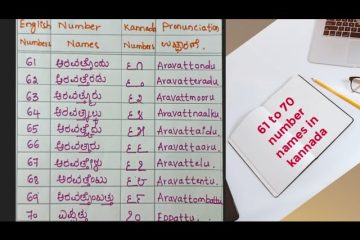 English Number Kannada Pronunciation
Numbers Names Numbers ಉಚ್ಚಾರಣೆ
61 ಅರವತ್ತೊಂದು ೬೧ Aravattondu
62 ಅರವತ್ತೆರಡು ೬೨ Aravatteradu
63 ಅರವತ್ಮೂರು ೬೩ Aravattmooru
64 ಅರವತ್ನಾಲ್ಕು ೬೪ Aravattnaalku
65 ಅರವತ್ತೈದು ೬೫ Aravattaidu
66 ಅರವತ್ತಾರು ೬೬ Aravattaaru
67 ಅರವತ್ತೇಳು ೬೭ Aravattelu
68 ಅರವತ್ತೆಂಟು ೬೮ Aravattentu
69 ಅರವತ್ತೊಂಬತ್ತು ೬೯ Aravattombattu
70 ಎಪ್ಪತ್ತು ೭೦ Eppattu
61 to 70
number
names in
kannada